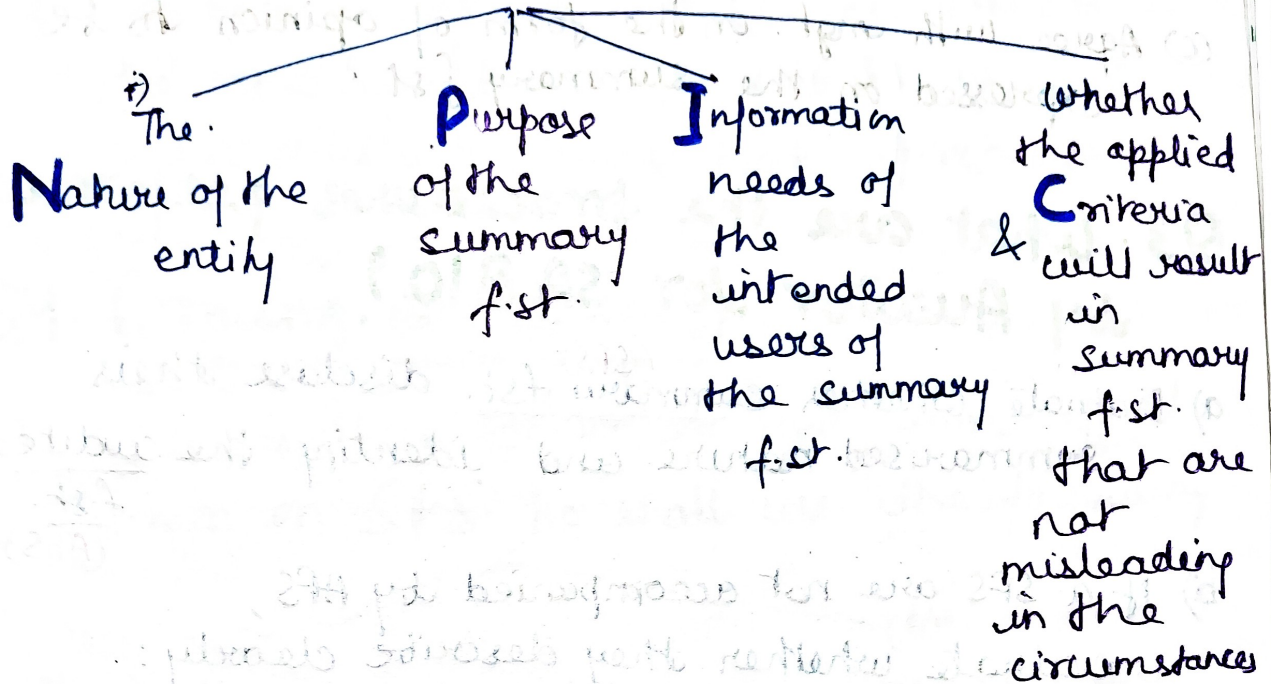 i)
The.
Nature of the
entity
Purpose
of the
summary
f.st.
Information
needs of
the
intended
users of
the summary
f.st.
&
Whether
the applied
Criteria
will result
in
summary
f.st.
that are
not
misleading
in the
circumstances